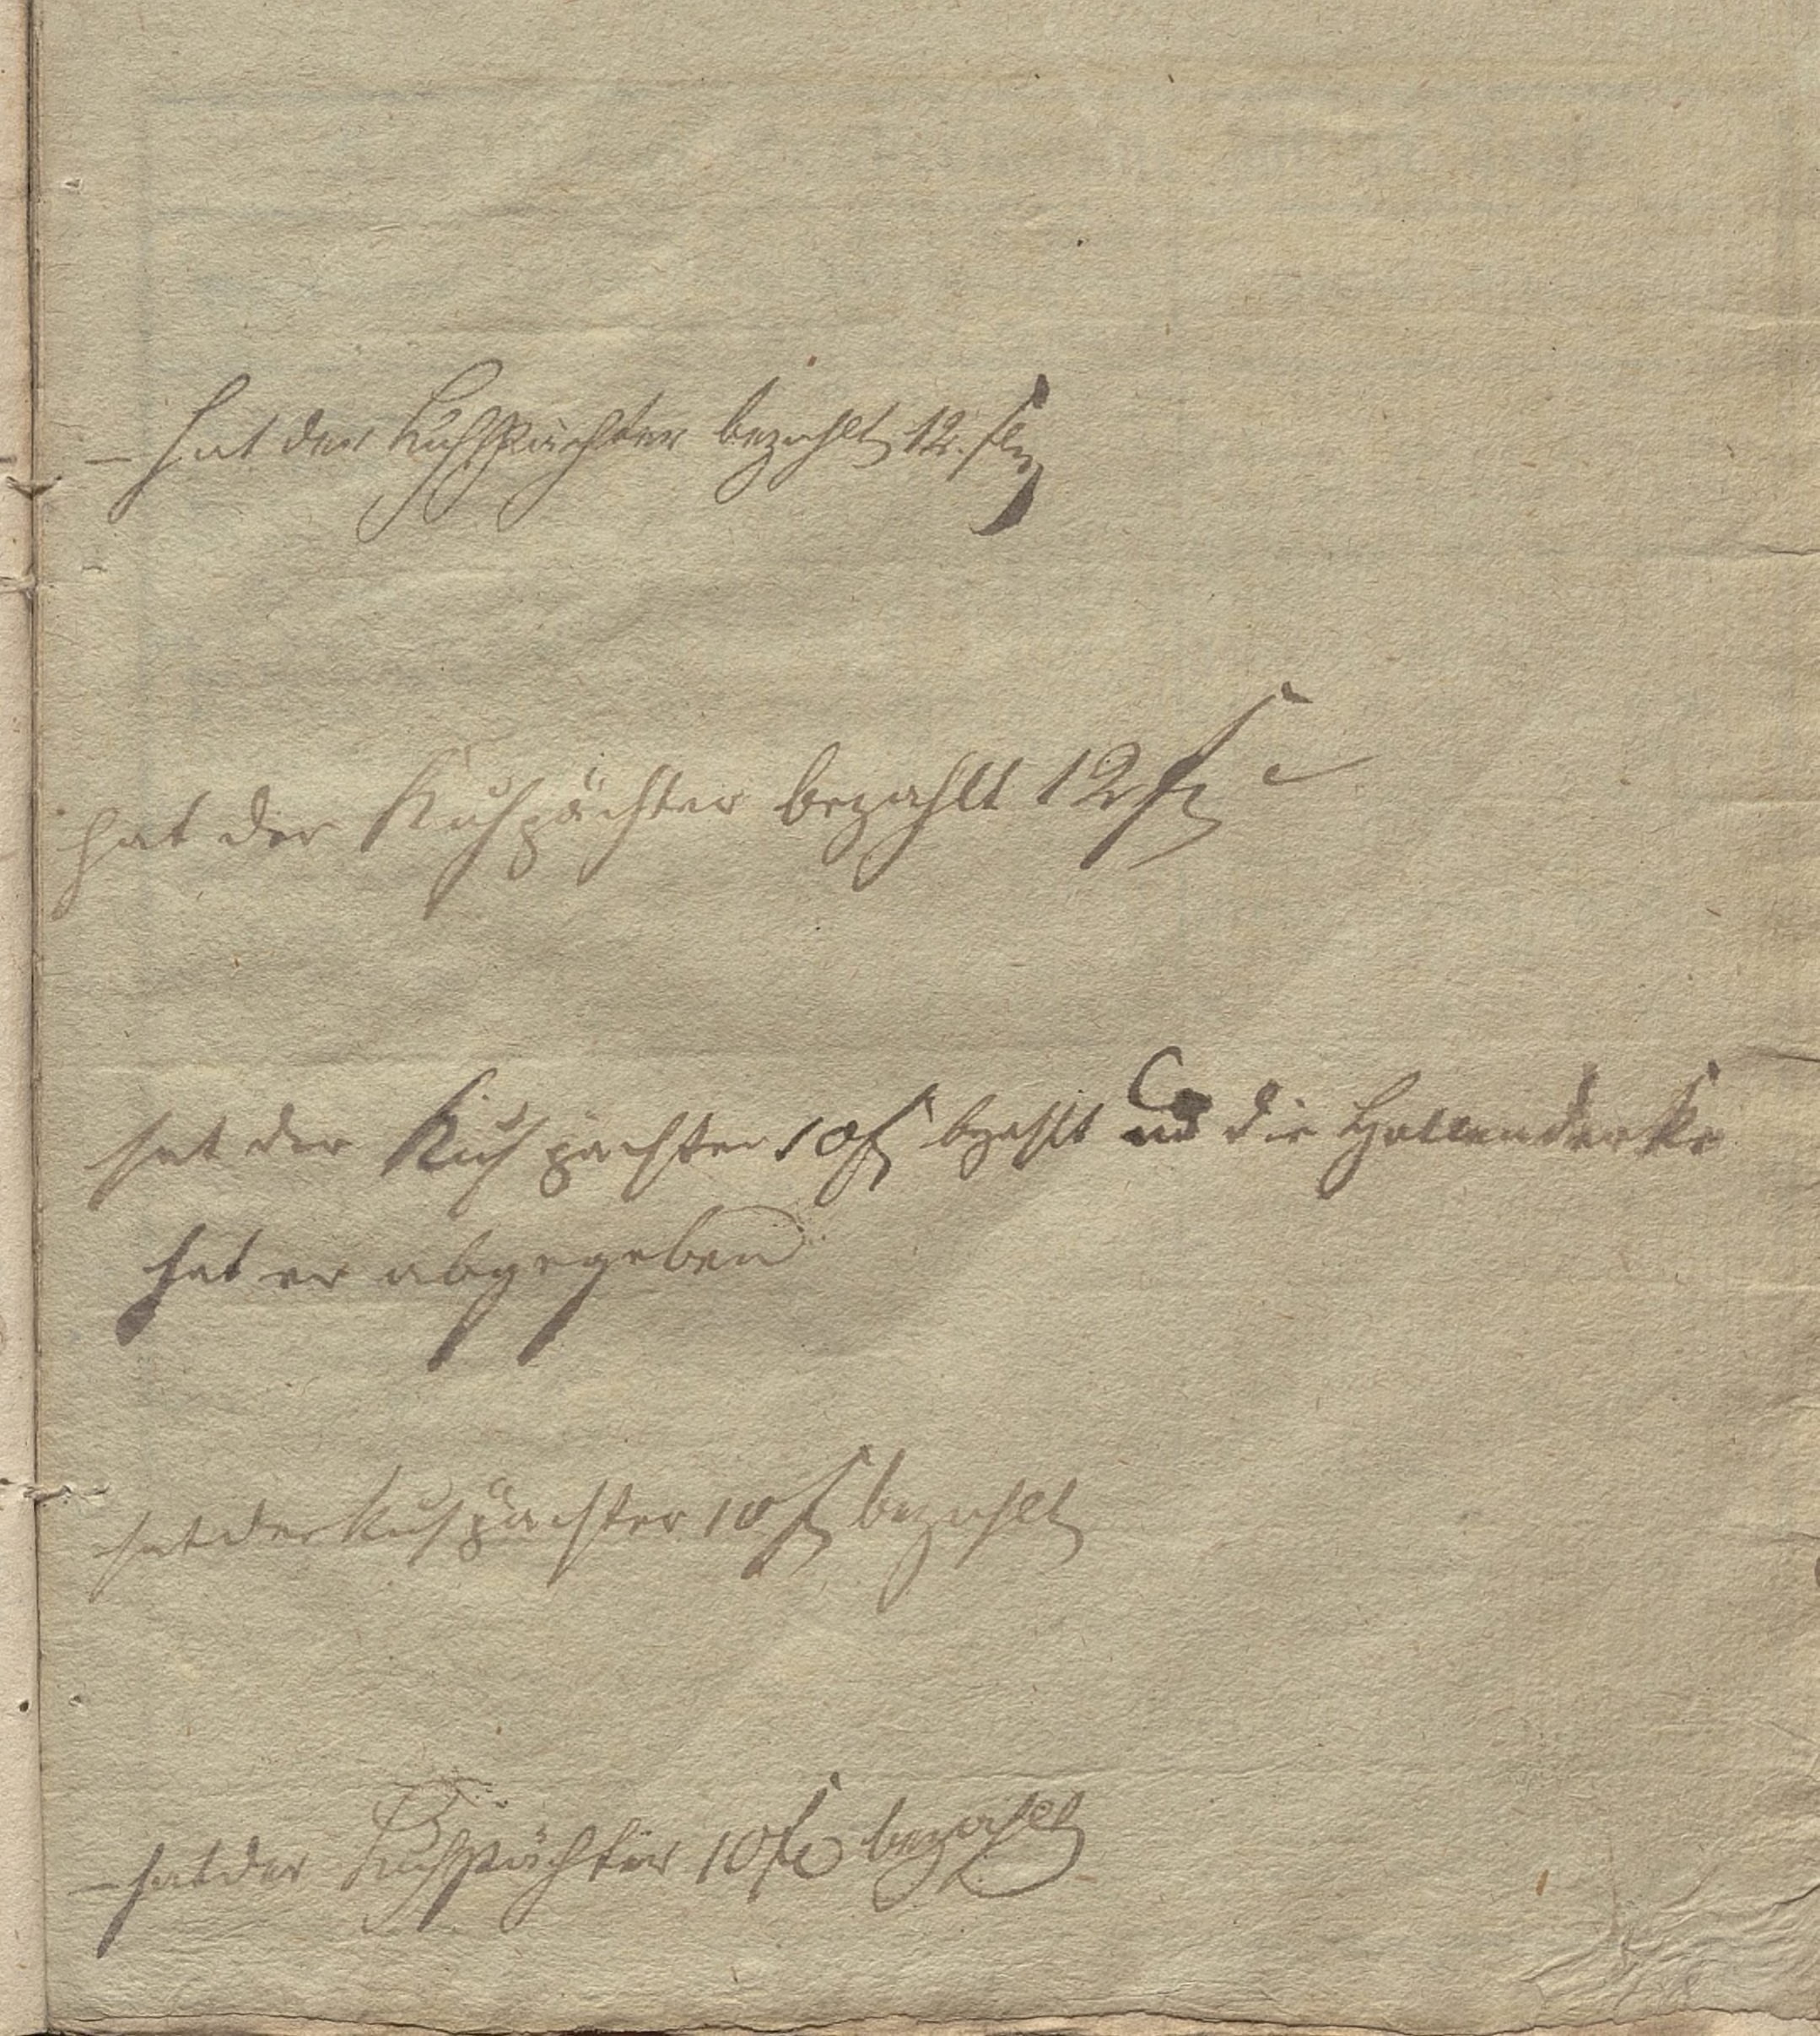 – hat der Kuhpächter bezahlt 12. ß
hat der Kuhpächter bezahlt 12 ß
hat der Kuh pächter 10 ß bezahlt und die Hollenderke
hat er abgegeben
hat der Kuhpächter 10 ß bezahlt
– hat der Kuhpächter 10 ß bezahlt